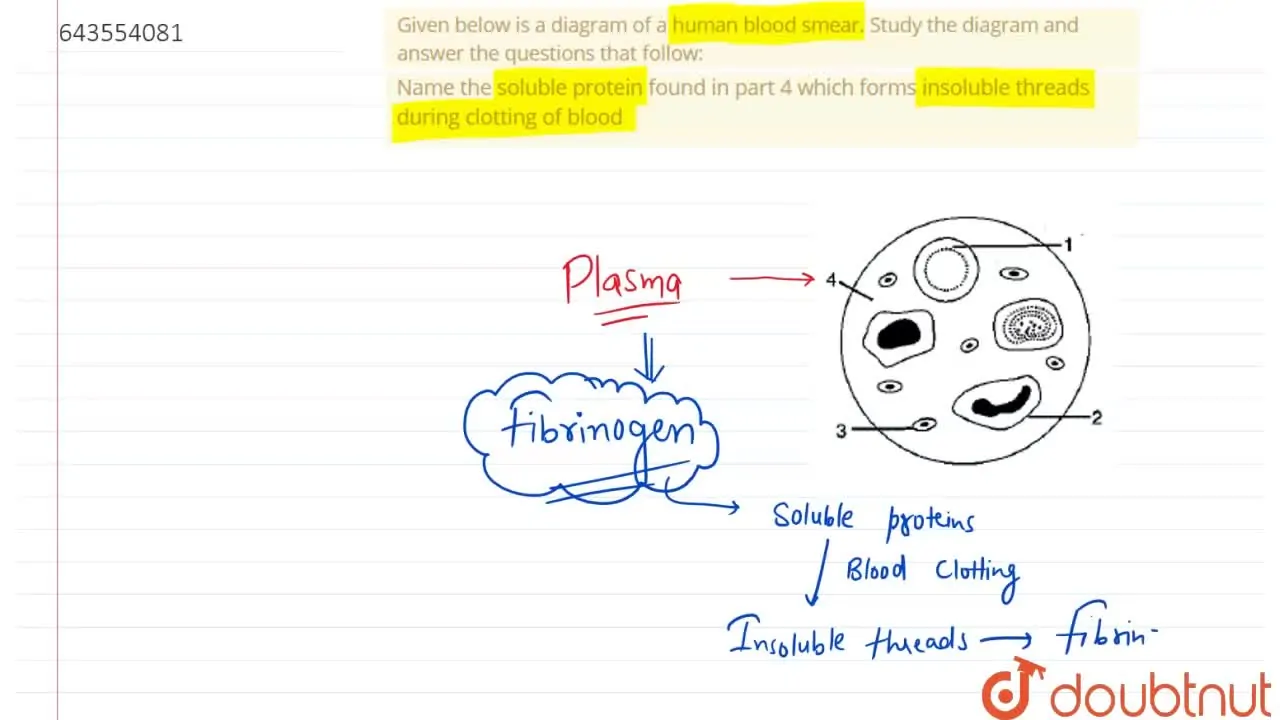 643554081
Given below is a diagram of a human blood smear. Study the diagram and
answer the questions that follow:
Name the soluble protein found in part 4 which forms insoluble threads
during clotting of blood
1
Plasma
4
fibrinogen
2
3
Soluble proteins
Blood Clotting
Insoluble threads → fibrin
doubtnut